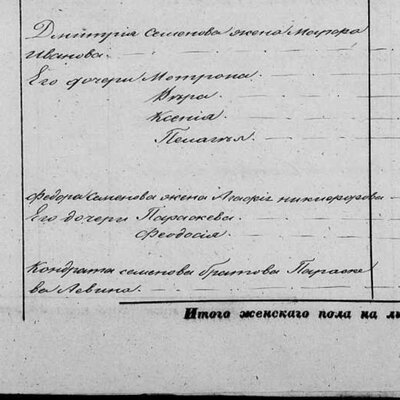 Дмитрія Семенова жена Мавра
Иванова.
Его дочери Матрона.
Вѣра.
Ксенія.
Пелагѣя.
Федора Семенова жена Агафія Никифорова
Его дочери Параскева.
Феодосія.
Кондрата Семенова братова Параске
ва Левина.
Итого женскаго пола на